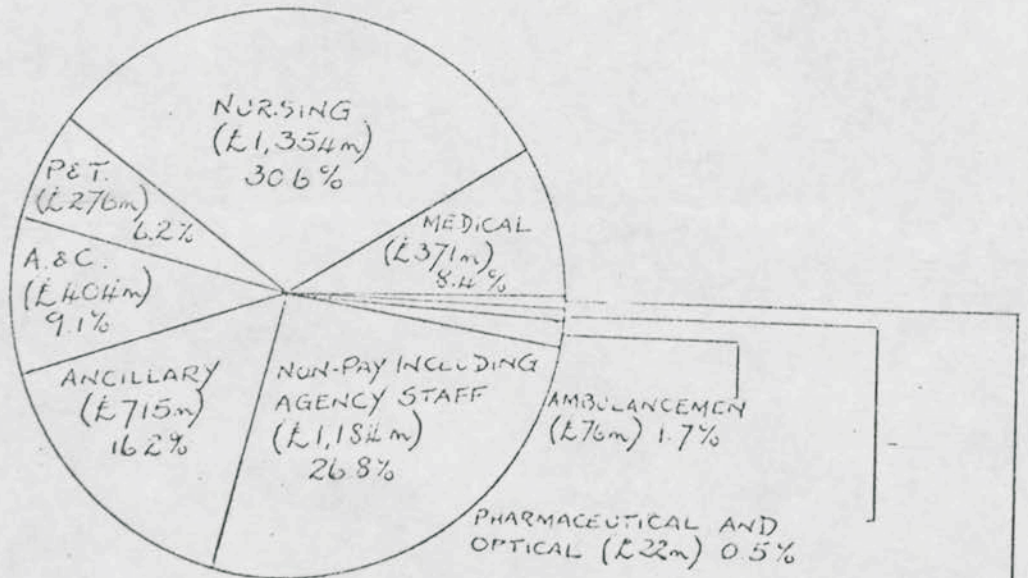 NURSING
(£1,354m)
30.6%
P&T.
(£276m)
6.2%
MEDICAL
(£371m)
8.4%
A.&C.
(£404m)
9.1%
ANCILLARY
(£715m)
16.2%
NON-PAY INCLUDING
AGENCY STAFF
(£1,184m)
26.8%
AMBULANCEMEN
(£76m) 1.7%
PHARMACEUTICAL AND
OPTICAL (£22m) 0.5%